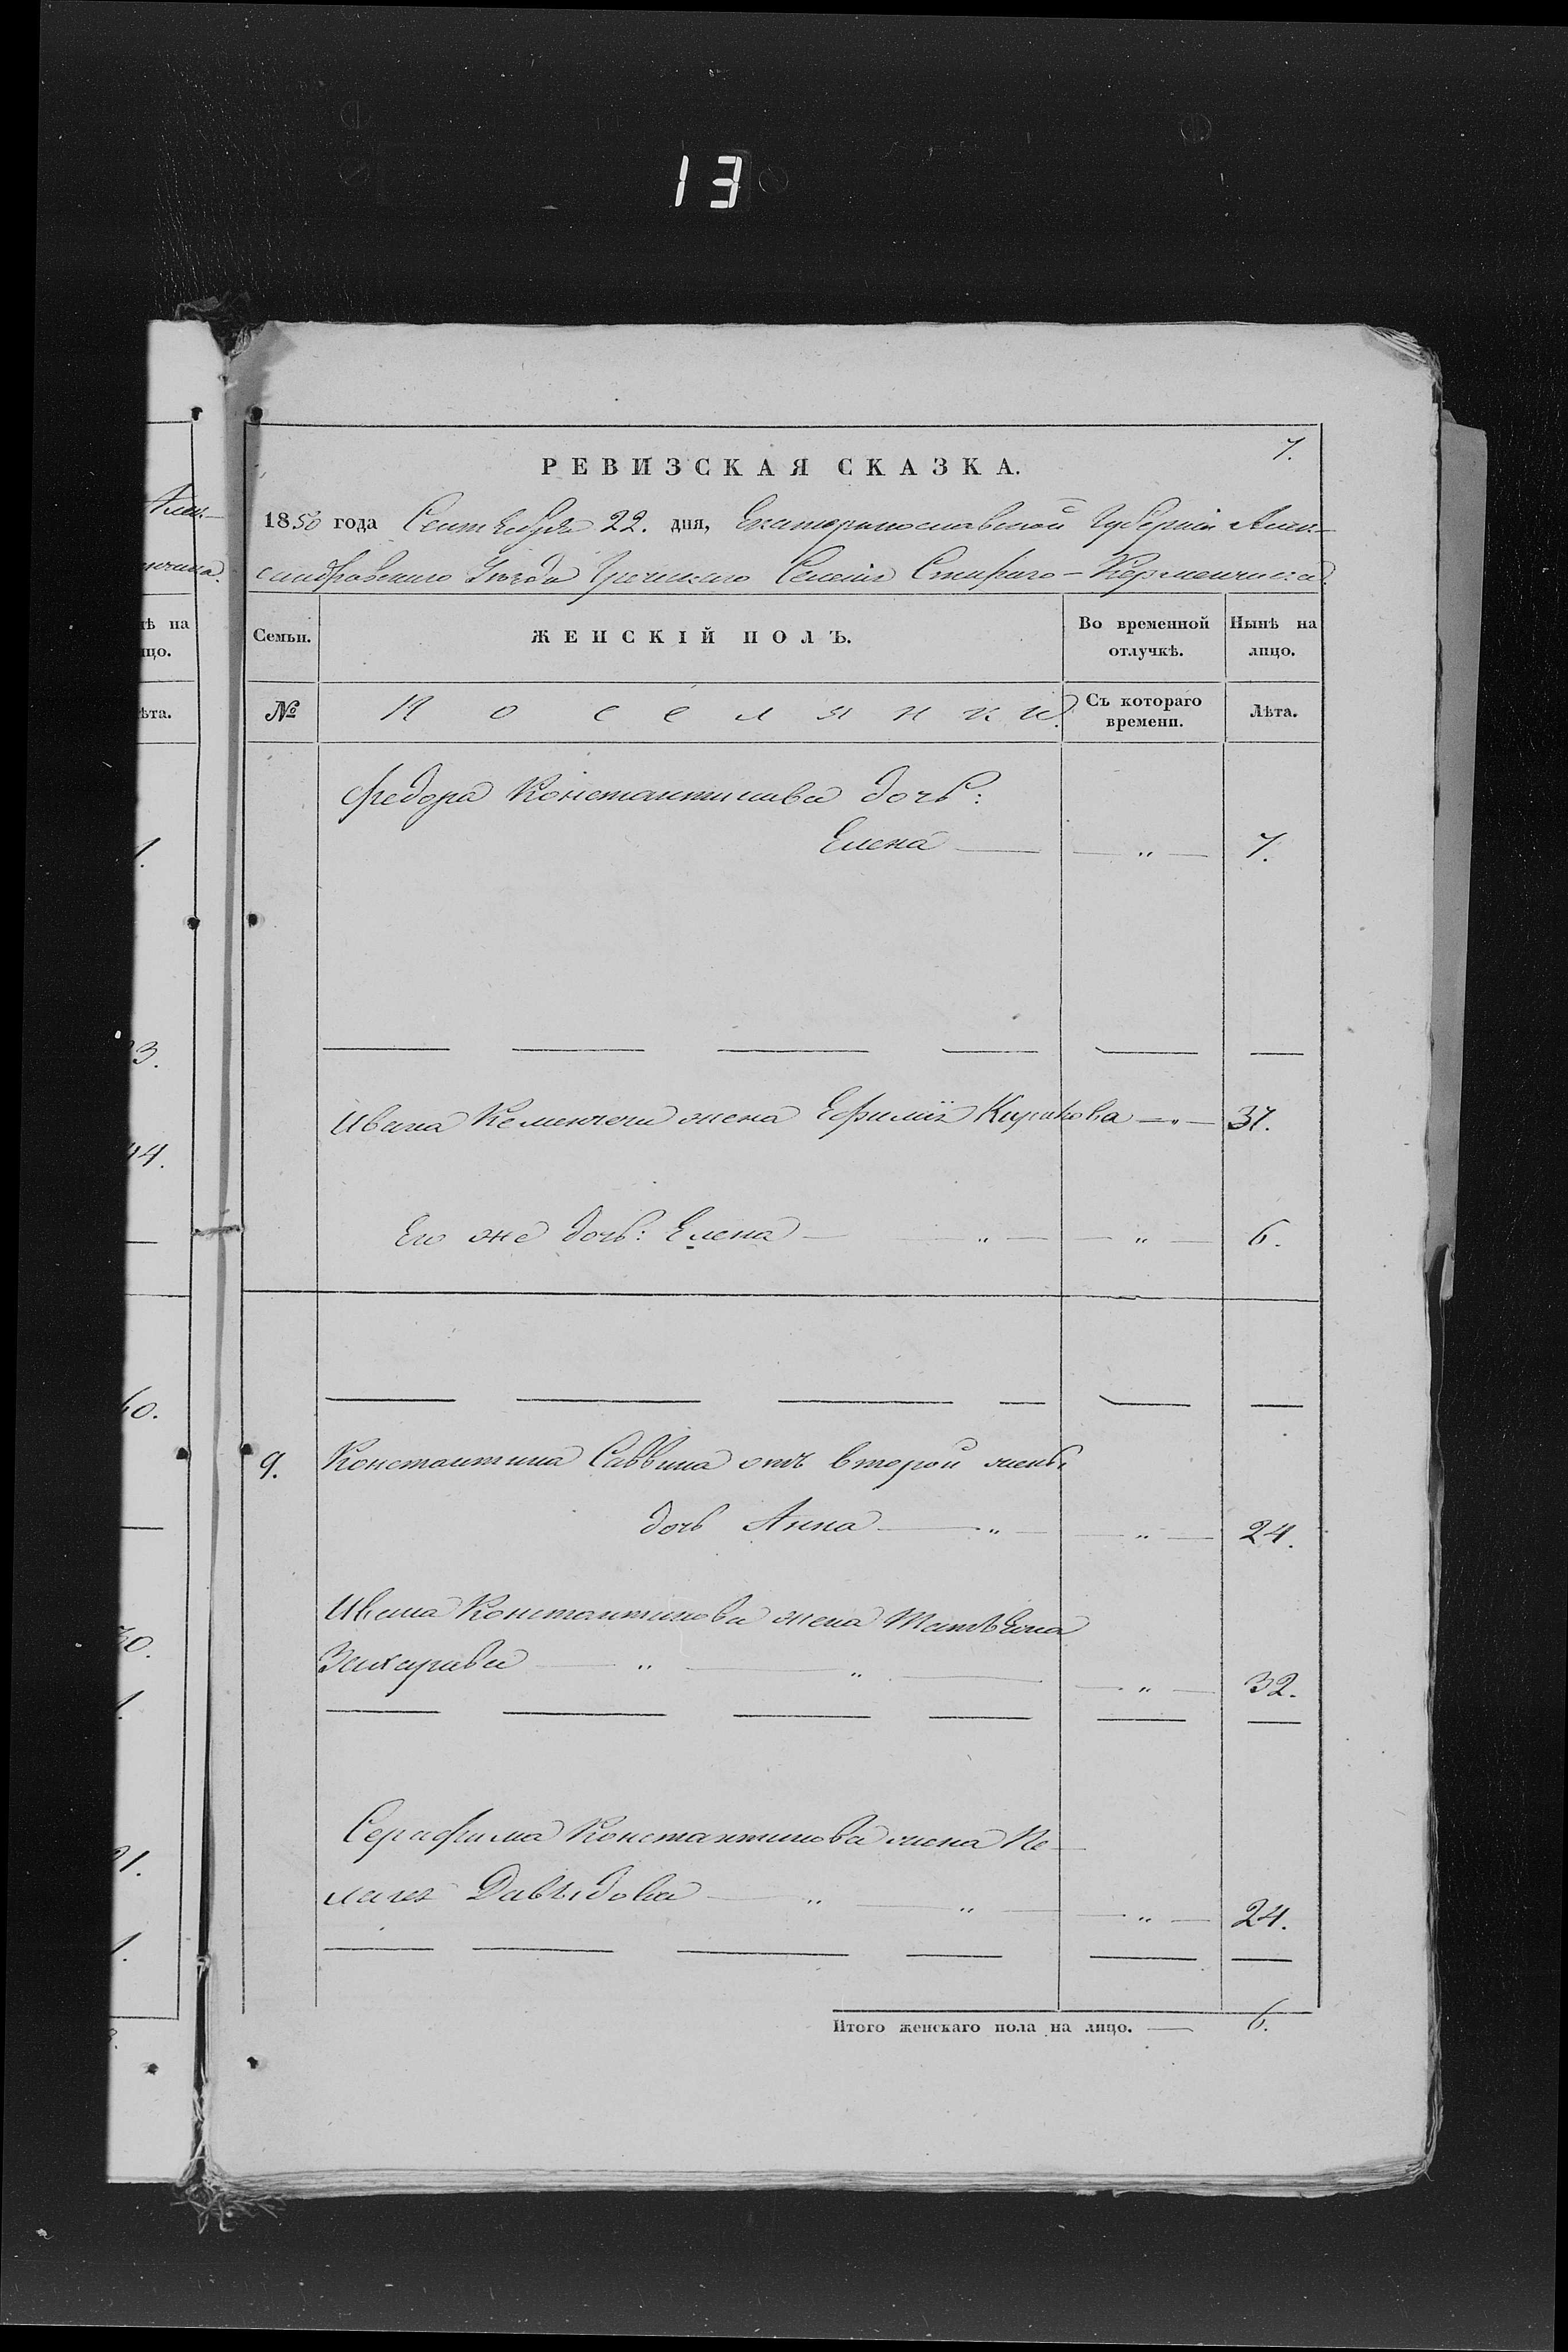 13
7.
РЕВИЗСКАЯ СКАЗКА.
1850 года Сентября 22. дня, Екатеринославской Губерніи Алек-
сандровскаго Уѣзда Греческаго Селенія Стараго-Керменчика.
Семьи. ЖЕНСКІЙ ПОЛЪ. Во временной отлучкѣ. Нынѣ на лицо.
№ Поселянки. Съ котораго времени. Лѣта.
Федора Константинова дочь:
Елена — — „ — 7.
Ивана Кеменчеги жена Ефимія Кирикова — „ — 37.
Его же дочь: Елена — „ — — „ — 6.
9. Константина Саввина отъ второй жены
дочь Анна — „ — — „ — 24.
Ивана Константинова жена Татьяна
Захарова — „ — „ — — „ — 32.
Серафима Константинова жена Пе-
лагея Давыдова — „ — „ — — „ — 24.
Итого женскаго пола на лицо. — 6.